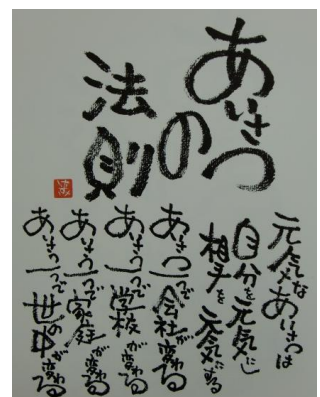 あいさつ
の
法則
元気なあいさつは
自分を元気にし
相手を元気にする
あいさつ一つで会社が変わる
あいさつ一つで学校が変わる
あいさつ一つで家庭が変わる
あいさつ一つで世の中が変わる